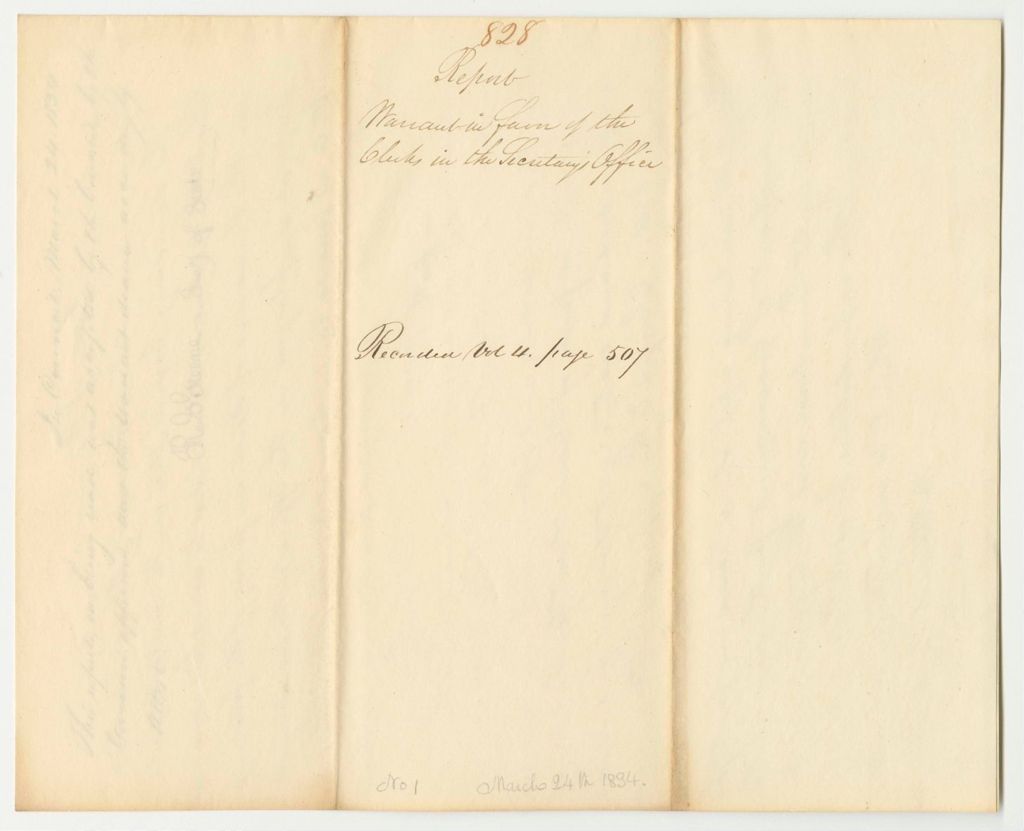 828
Report
Warrant in favor of the
Clerks in the Secretary's Office
Recorded Vol 4. page 507
No 1 March 24th 1834.